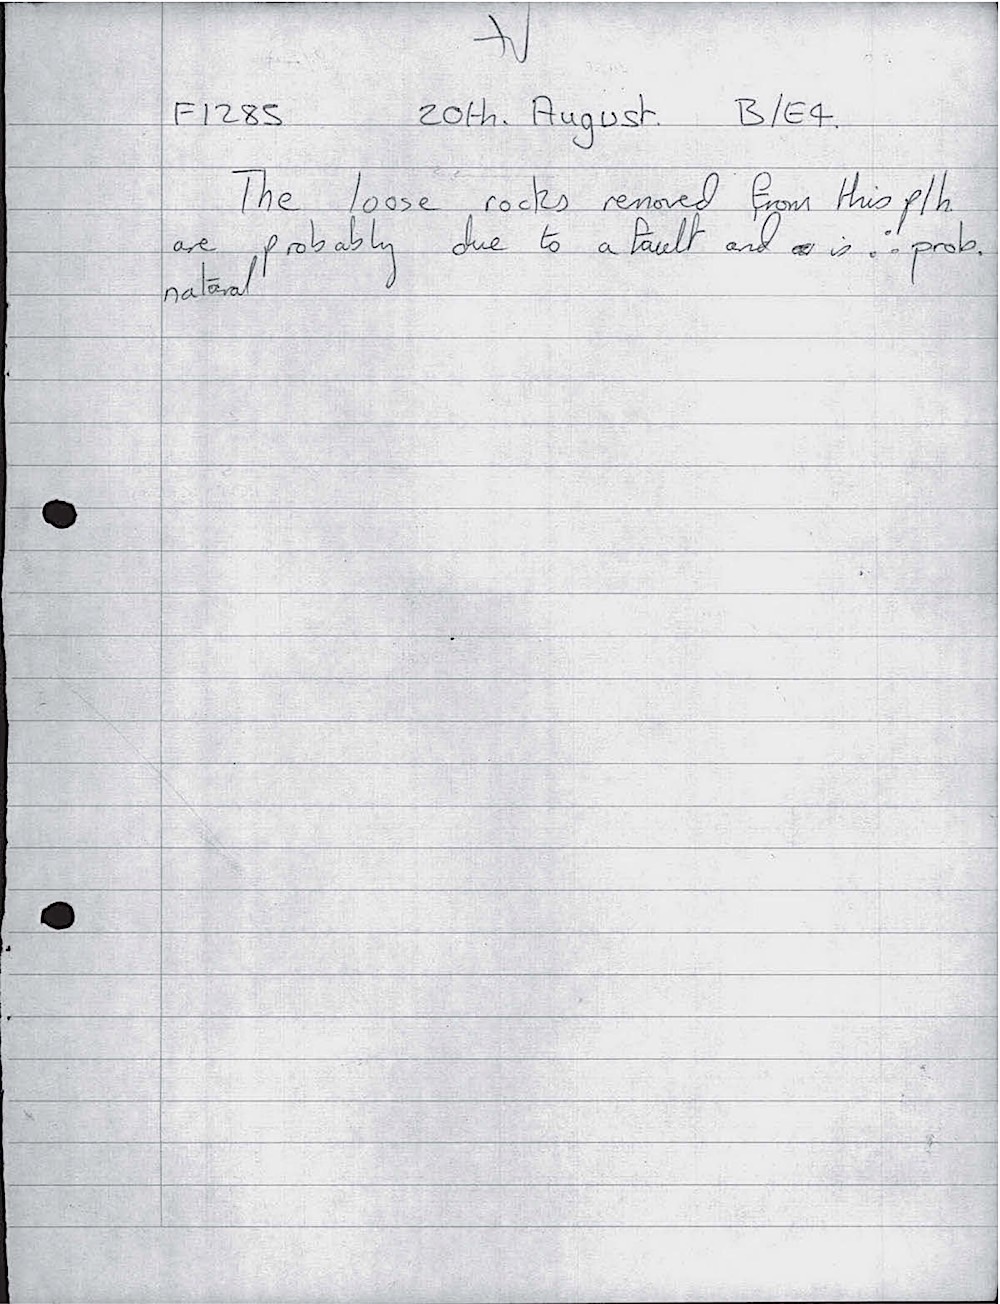 F1285 20th. August. B/E4.
The loose rocks removed from this p/h
are probably due to a fault and is ∴ prob.
natural